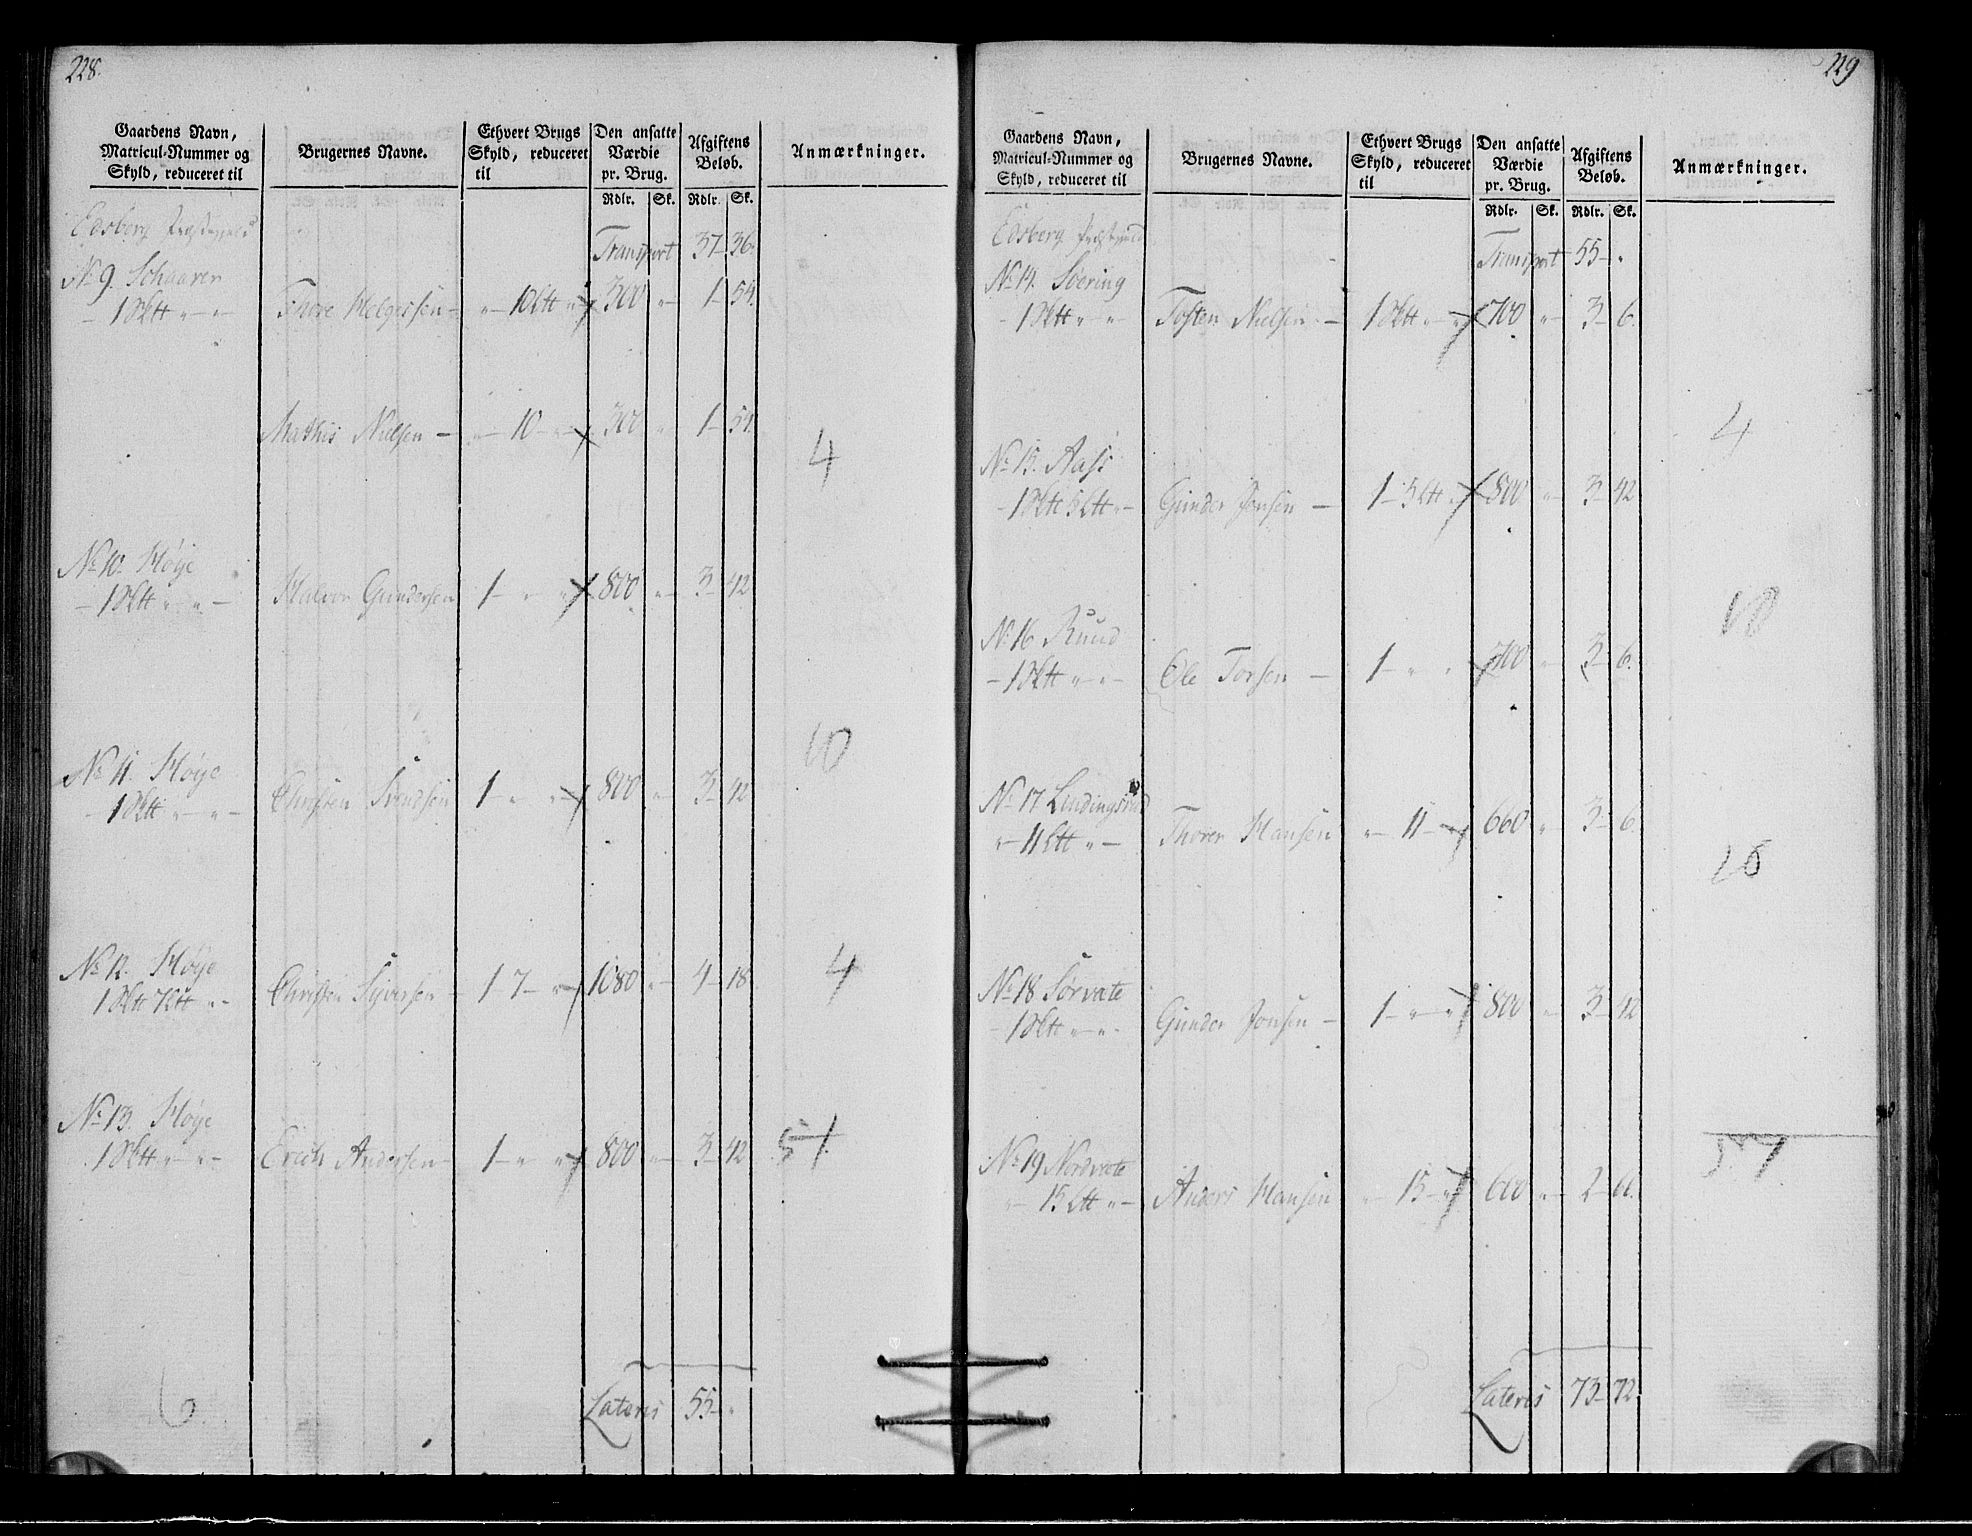 228.
Gaardens Navn, Matricul-Nummer og Skyld, reduceret til | Brugernes Navne. | Ethvert Brugs Skyld, reduceret til | Den ansatte Værdie pr. Brug. Rdlr. Sk. | Afgiftens Beløb. Rdlr. Sk. | Anmærkninger.
Edsberg Præstegield | Transport | 37 - 36.
No 9. Schaaren
- 1 Skff " - " - | Thore Helgessen - | " - 10 Lff " | 300 " - | 1 - 54.
Mathis Nielsen - | " - 10 - " | 300 " | 1 - 54.
4
No 10. Høije
- 1 Skff " - " - | Halvor Gundersen | 1 - " " | 800 " - | 3 - 42
No 11. Høije
- 1 Skff " - " - | Christen Svendsen | 1 - " " - | 800 " | 3 - 42
10
No 12. Høije
1 Skff 7 Lff " - | Christen Syversen - | 1 - 7 - " | 1080 " - | 4 - 18
4
No 13. Høije
1 Skff " - " - | Erich Andersen - | 1 - " " | 800 " - | 3 - 42
51
6
Lateris | 55 - "
229
Gaardens Navn, Matricul-Nummer og Skyld, reduceret til | Brugernes Navne. | Ethvert Brugs Skyld, reduceret til | Den ansatte Værdie pr. Brug. Rdlr. Sk. | Afgiftens Beløb. Rdlr. Sk. | Anmærkninger.
Edsberg Præstegield | Transport | 55 - "
No 14. Soering
- 1 Skff " - " | Tosten Nielsen - | 1 Skff " - " | 700 " | 3 - 6.
4
No 15. Aass
- 1 Skff 5 Lff " - | Gunder Jonsen - | 1 - 5 Lff " | 800 " - | 3 - 42
No 16 Ruud
- 1 Skff " - " - | Ole Torsen - | 1 " " | 700 " | 3 - 6.
No 17 Lundingsrud
" - 11 Lff " - | Thorer Hansen | " - 11 - " | 660 " | 3 - 6
No 18 Sørvate
- 1 Skff " - " - | Gunder Jonsen - | 1 - " - " | 800 " - | 3 - 42
No 19 Nordvate
" - 15 Lff " - | Anders Hansen | " - 15 - " | 600 " - | 2 - 66.
57
Lateris | 73 - 72.